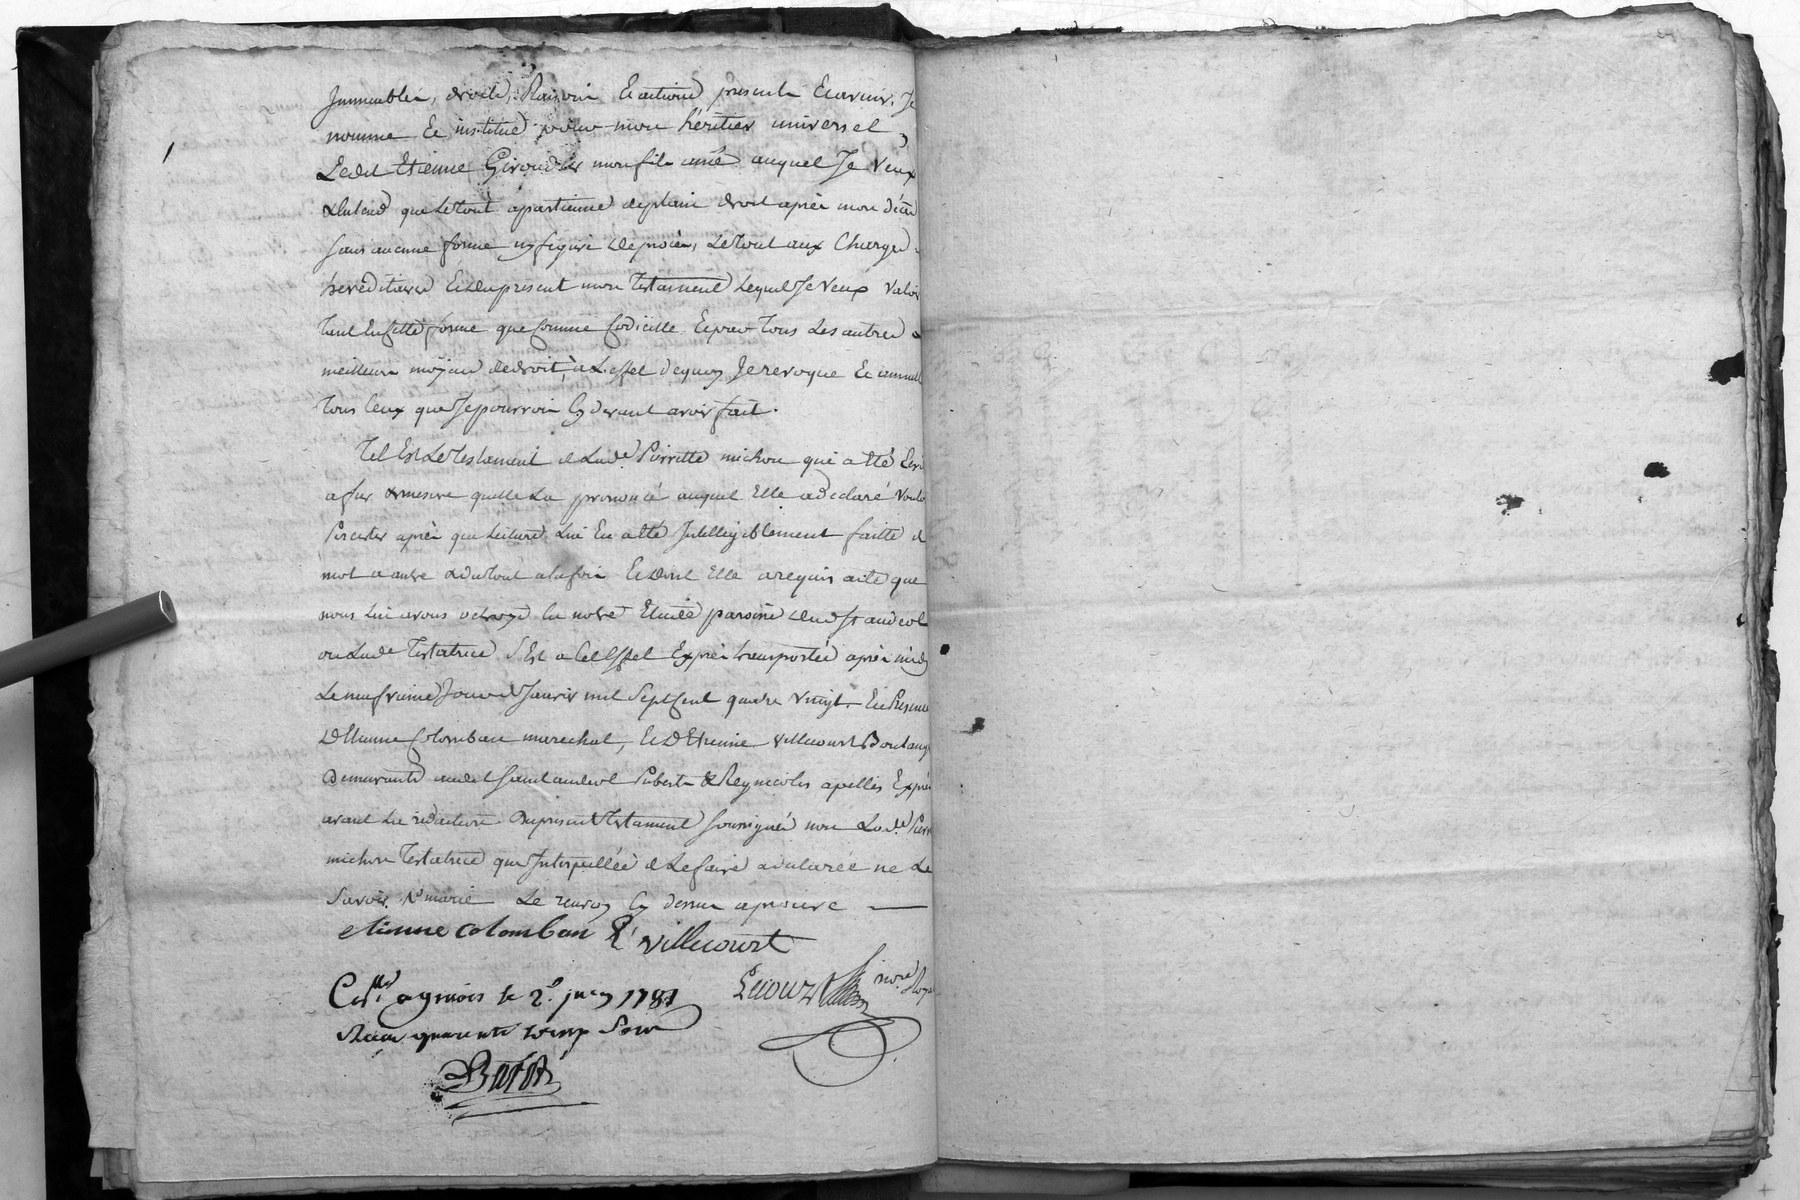 Immeubles, droits, Raisons Et actions presents Et avenir, Je
nomme Et institue pour mon héritier universel,
Ledit Etienne Giroudier mon fils ainé auquel Je veux
& Entend que le tout apartienne de plain droit après mon décès
sans aucune forme ny figure de procès, Le tout aux Charges
héréditaires Et du present mon Testament Lequel Je veux valoir
Tant En cette forme que Comme Codicille Et par Tous Les autres
meilleurs moÿens de droit, à L'effet de quoy Je revoque Et annulle
Tous Ceux que Je pourrois Cy devant avoir fait.
Tel Est Le Testament de Lad.e Pierrette michon qui a Eté Ecri
a fur & mesure quelle La prononcé auquel Elle a déclaré voulo
Persister après que Lecture Lui En a Eté Intelligiblement faitte de
mot a autre & du tout a la fois Et dont Elle a requis acte que
nous Lui avons octroyé En notre Etude paroisse dud St andeol
ou Lad.e Testatrice s'Est a Cet Effet Exprès transportée après midy
Le neufvieme Jour de Janvier mil Sept Cent quatre vingt En Presence
D'Etienne Colomban marechal, Et D'Etienne Villecourt Boulang
Demeurants audit Saint andeol Puberts & Regnicoles apellés Exprès
avant La rédaction Du present Testament soussignés non Lad.e Pierr
michon Testatrice que Interpellée de Le faire a déclarée ne Le
Savoir. Le renvoy Cy dessus aprouvé
etienne colomban E villecourt
Lecourt nore Royal
Con.lé a gniois le 2.e 1781
Recu quarante vingt Sous